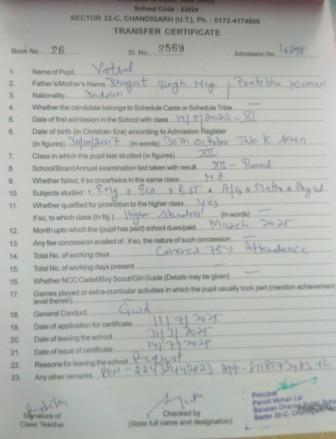 School Code :
SECTOR 32-C, CHANDIGARH (U.T.), Ph. : 0172-4174805
TRANSFER CERTIFICATE
Book No. 26 Sl. No. 2569 Admission No.
1. Name of Pupil Vatsal
2. Father's/Mother's Name Bhagat Singh Negi / Pratibha Kumari
3. Nationality Indian
4. Whether the candidate belongs to Schedule Caste or Schedule Tribe —
5. Date of first admission in the School with class XI
6. Date of birth (in Christian Era) according to Admission Register
(in figures) 30/10/2007 (in words) 30th October Two K Seven
7. Class in which the pupil last studied (in figures) XII
8. School/Board Annual examination last taken with result XII - Passed
9. Whether failed, if so once/twice in the same class NA
10. Subjects studied : Eng 2 Eco
11. Whether qualified for promotion to the higher class Yes
If so, to which class (in fig.) Higher Studies (in words) —
12. Month upto which the (pupil has paid) school dues/paid March 2025
13. Any fee concession availed of : if so, the nature of such concession —
14. Total No. of working days Covers 75% Attendance
15. Total No. of working days present
16. Whether NCC Cadet/Boy Scout/Girl Guide (Details may be given)
17. Games played or extra-curricular activities in which the pupil usually took part (mention achievement
level therein)
18. General Conduct Good
19. Date of application for certificate 11/7/2025
20. Date of leaving the school 31/3/2025
21. Date of issue of certificate 14/7/2025
22. Reasons for leaving the school Request
23. Any other remarks PEN -
Signature of
Class Teacher
Checked by
(State full name and designation)
Principal
Pandit Mohan Lal
Sector 32-C,